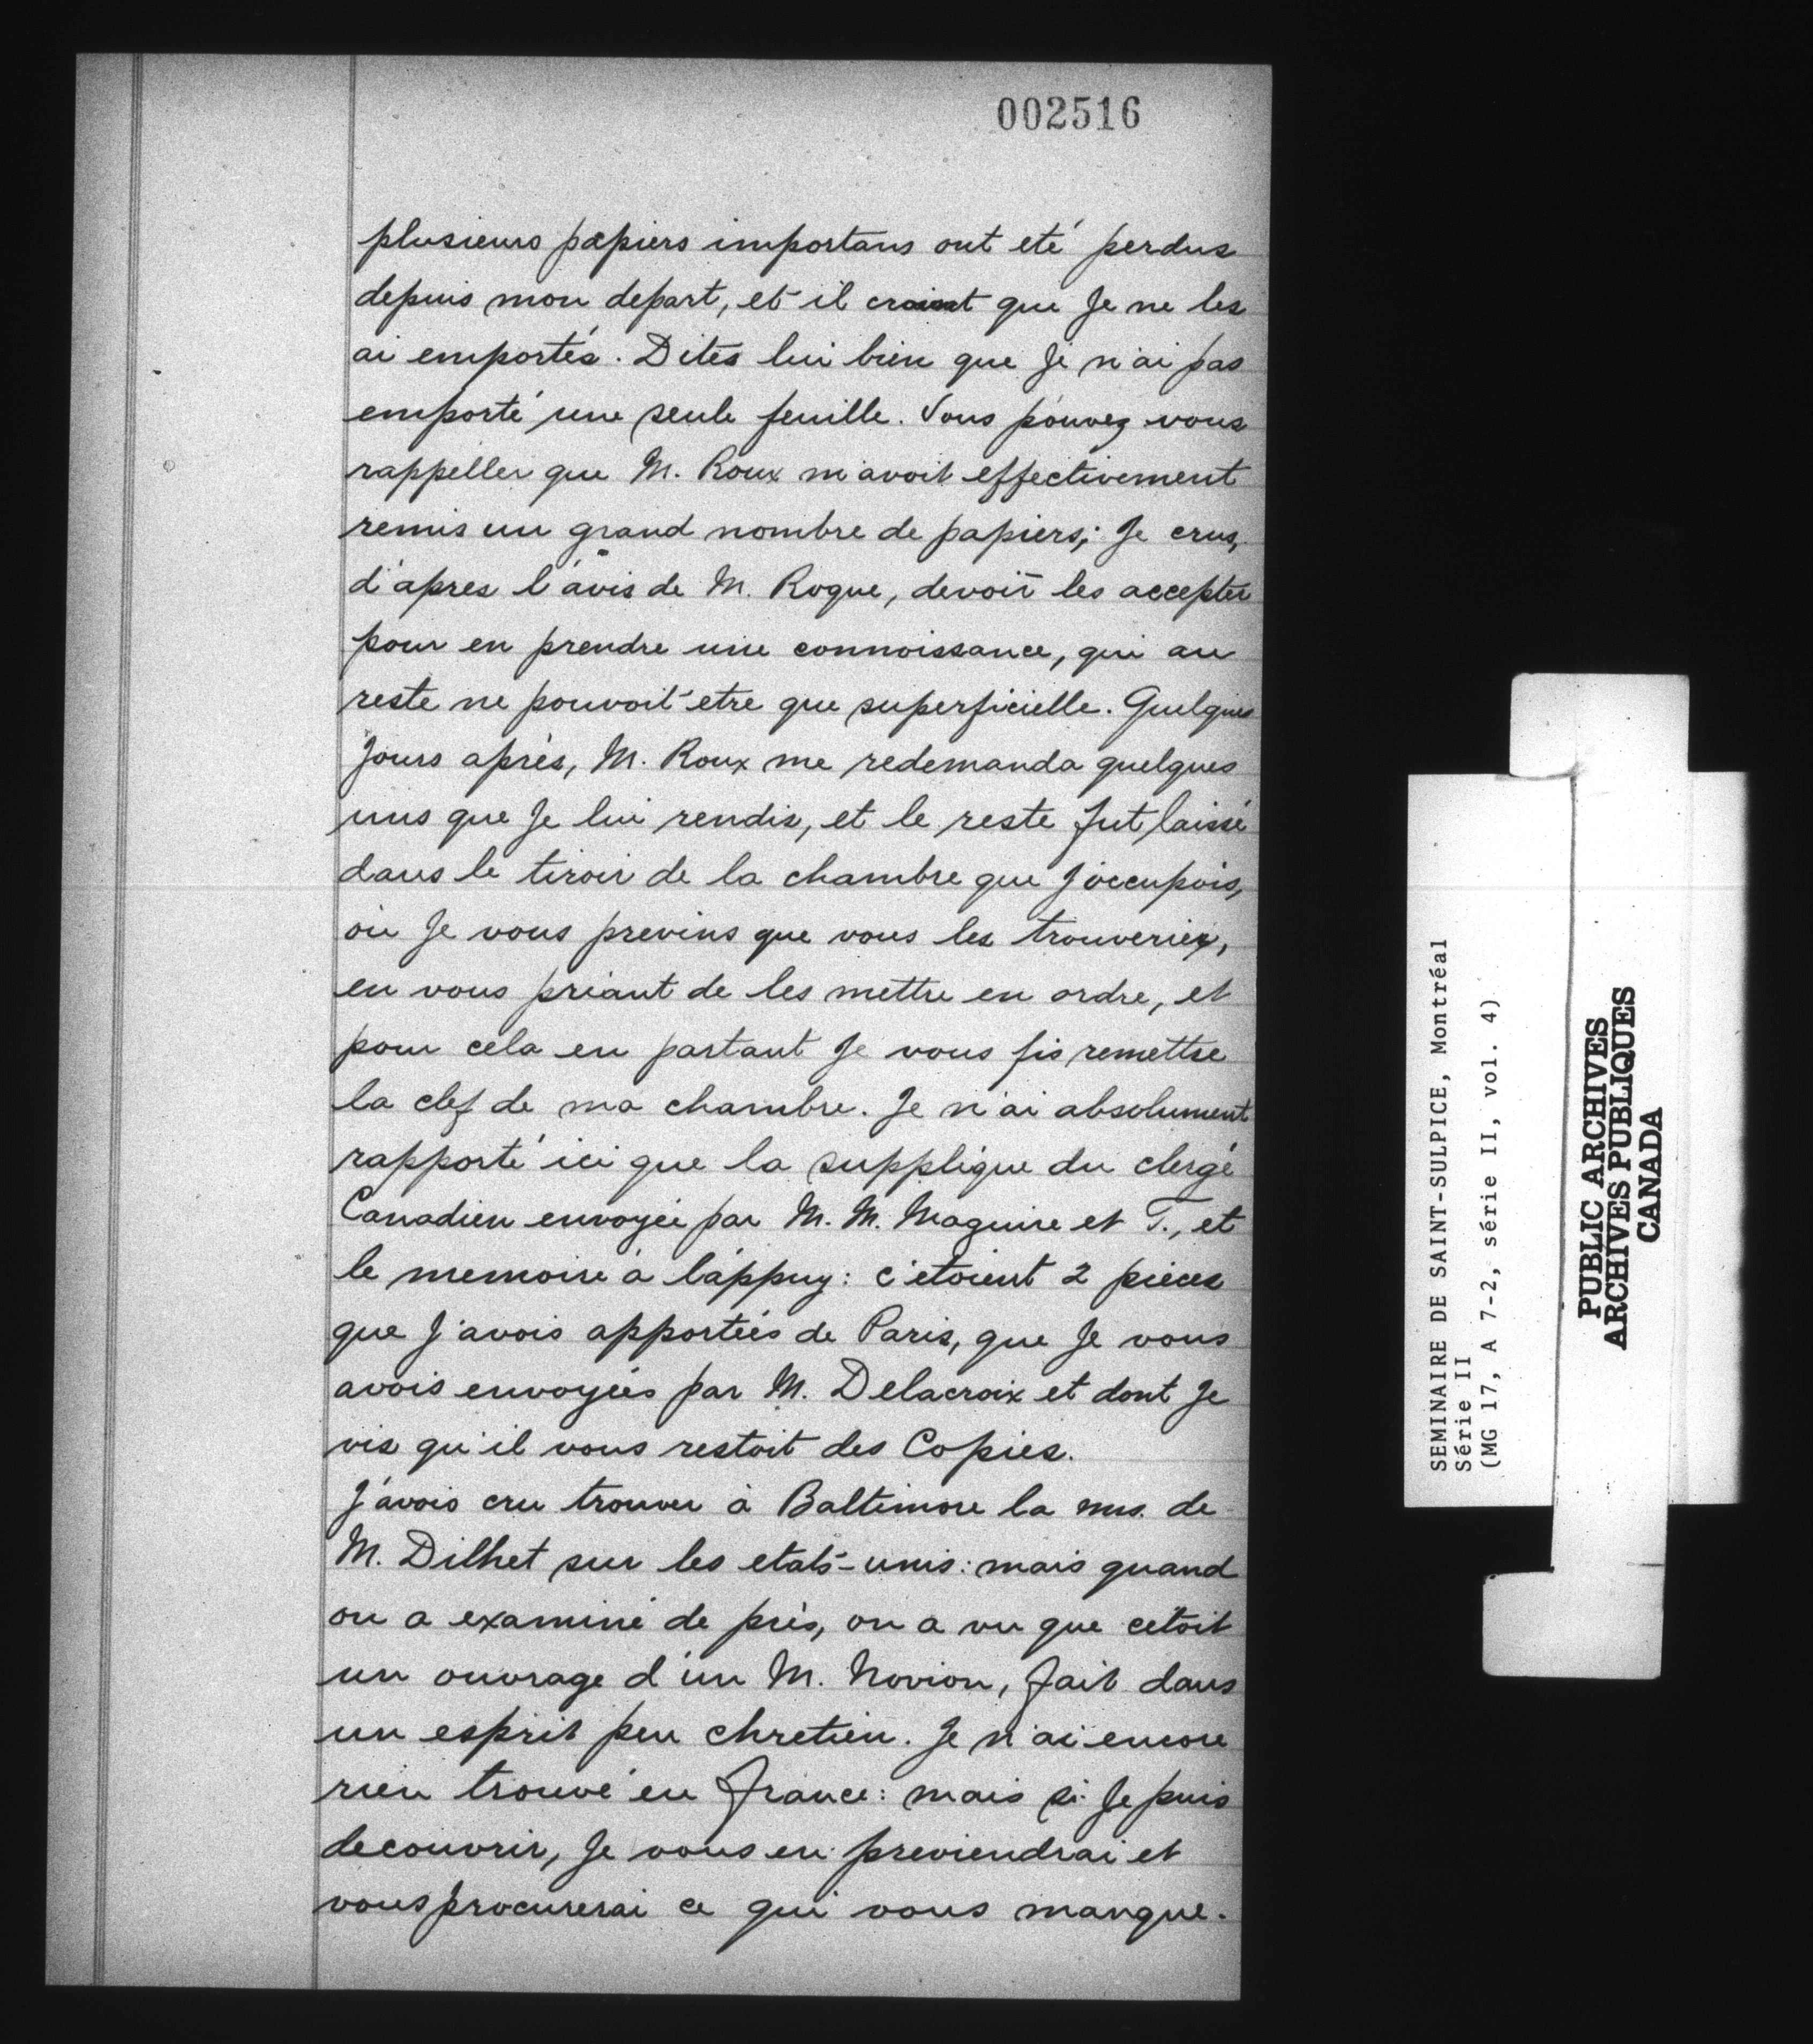 002516
plusieurs papiers importans ont eté perdus
depuis mon depart, et il craint que Je ne les
ai emportés. Dites lui bien que Je n'ai pas
emporté une seule feuille. Vous pouvez vous
rappeller que M. Roux m'avoit effectivement
remis un grand nombre de papiers; Je crus,
d'apres l'avis de M. Roque, devoir les accepter
pour en prendre une connoissance, qui au
reste ne pouvoit etre que superficielle. Quelques
Jours après, M. Roux me redemanda quelques
uns que Je lui rendis, et le reste fut laissé
dans le tiroir de la chambre que J'occupois,
où Je vous previns que vous les trouveriez,
en vous priant de les mettre en ordre, et
pour cela en partant Je vous fis remettre
la clef de ma chambre. Je n'ai absolument
rapporté ici que la supplique du clergé
Canadien envoyée par M. M. Maguire et T., et
le memoire à l'appuy: c'etoient 2 pieces
que J'avois apportées de Paris, que Je vous
avois envoyées par M. Delacroix et dont Je
vis qu'il vous restoit des Copies.
J'avois cru trouver à Baltimore la ms. de
M. Dilhet sur les etats-unis: mais quand
on a examiné de près, on a vu que c'etoit
un ouvrage d'un M. Novion, fait dans
un esprit peu chretien. Je n'ai encore
rien trouvé en France: mais si Je puis
decouvrir, Je vous en previendrai et
vous procurerai ce qui vous manque.
SEMINAIRE DE SAINT-SULPICE, Montréal
Série II
(MG 17, A 7-2, série II, vol. 4)
PUBLIC ARCHIVES
ARCHIVES PUBLIQUES
CANADA